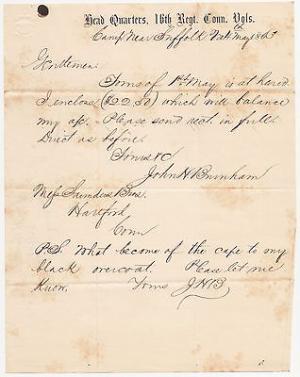 Head Quarters, 16th Regt. Conn. Vols.
Camp Near Suffolk Va May 1863
Gentlemen
Yours of 1st May is at hand
I enclose ($22,50) which will balance
my a/c. Please send rect. in full.
Direct as before.
Yours &c
John H Burnham
Mess Saunders Bros.
Hartford
Conn
P.S. What become of the cape to my
black overcoat. Please let me
know. Yours JHB